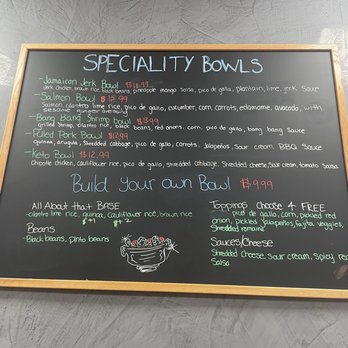 SPECIALITY BOWLS
-Jamaican Jerk Bowl
Jerk chicken, brown rice, black beans, pineapple mango salsa, pico de gallo, plantain, lime, jerk sauce
-Salmon Bowl $15.99
Salmon, cilantro lime rice, pico de gallo, cucumber, corn, carrots, edamame, avocado, with
sesame ginger dressing
-Bang Bang Shrimp bowl $13.99
Grilled Shrimp, cilantro rice, black beans, red onions, corn, pico de gallo, bang bang Sauce
-Pulled Pork Bowl $12.99
quinoa, arugula, Shredded cabbage, pico de gallo, carrots, Jalapeños, Sour cream, BBQ Sauce
-Keto Bowl $12.99
Chipotle chicken, cauliflower rice, pico de gallo, shredded cabbage, Shredded cheese, sour cream, tomato Salsa
Build Your own Bowl $9.99
All About that BASE
-cilantro lime rice, quinoa, cauliflower rice, brown rice
+1 +2
Beans
-Black beans, pinto beans
Toppings Choose 4 FREE
pico de gallo, corn, pickled red
onion, pickled Jalapeños, fajita veggies,
Shredded romaine
Sauces/Cheese
Shredded Cheese, Sour cream, Spicy red
Salsa